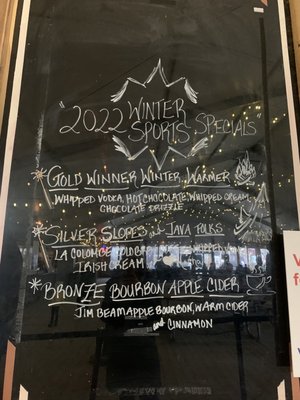 "2022 WINTER
SPORTS SPECIALS"
* GOLD WINNER WINTER WARMER
WHIPPED VODKA, HOT CHOCOLATE, WHIPPED CREAM
CHOCOLATE DRIZZLE
* SILVER SLOPES JAVA
LA COLOMBE COLD WHIPPED
IRISH CREAM
* BRONZE BOURBON APPLE CIDER
JIM BEAM APPLE BOURBON, WARM CIDER
and CINNAMON